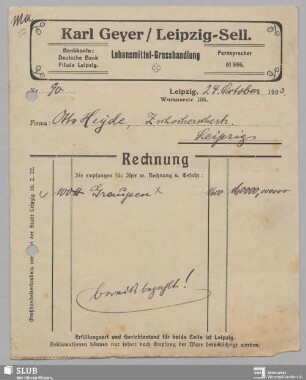 Karl Geyer / Leipzig-Sell.
Bankkonto:
Deutsche Bank
Filiale Leipzig.
Lebensmittel-Grosshandlung
Fernsprecher
61 555.
Nr. 90.
Leipzig, 24. October 1923.
Wurznerstr. 106.
Firma: Otto Heyde, Zschocherschestr.
Leipzig
Rechnung
Sie empfingen für Ihre w. Rechnung u. Gefahr:
100 Graupen
bereits bezahlt!
Erfüllungsort und Gerichtsstand für beide Teile ist Leipzig.
Reklamationen können nur sofort nach Empfang der Ware berücksichtigt werden.
SLUB
Wir führen Wissen.